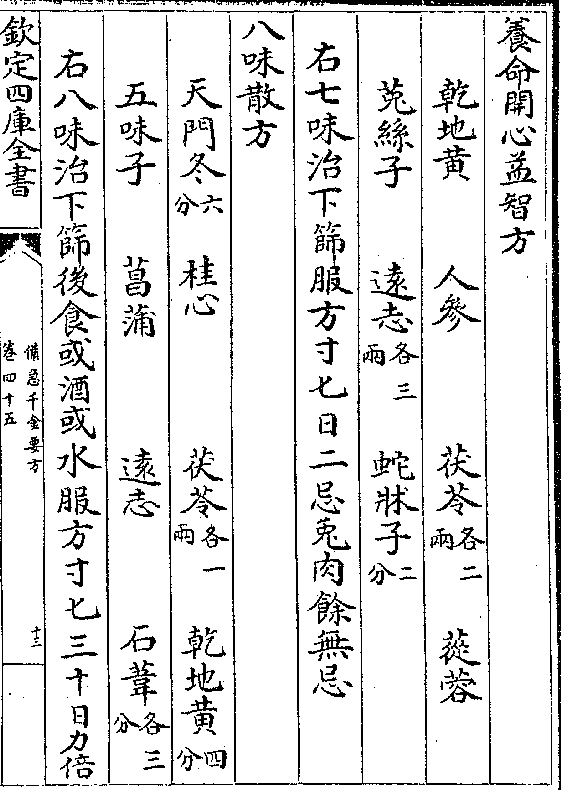 養命開心益智方
乾地黄 人參 茯苓各二兩 蓯蓉
菟絲子 遠志各三兩 蛇牀子二分
右七味治下篩服方寸匕日二忌兎肉餘無忌
八味散方
天門冬六分 桂心 茯苓各一兩 乾地黄四分
五味子 菖蒲 遠志 石葦各三分
右八味治下篩後食或酒或水服方寸匕三十日力倍
欽定四庫全書
備急千金要方
卷四十五
十三